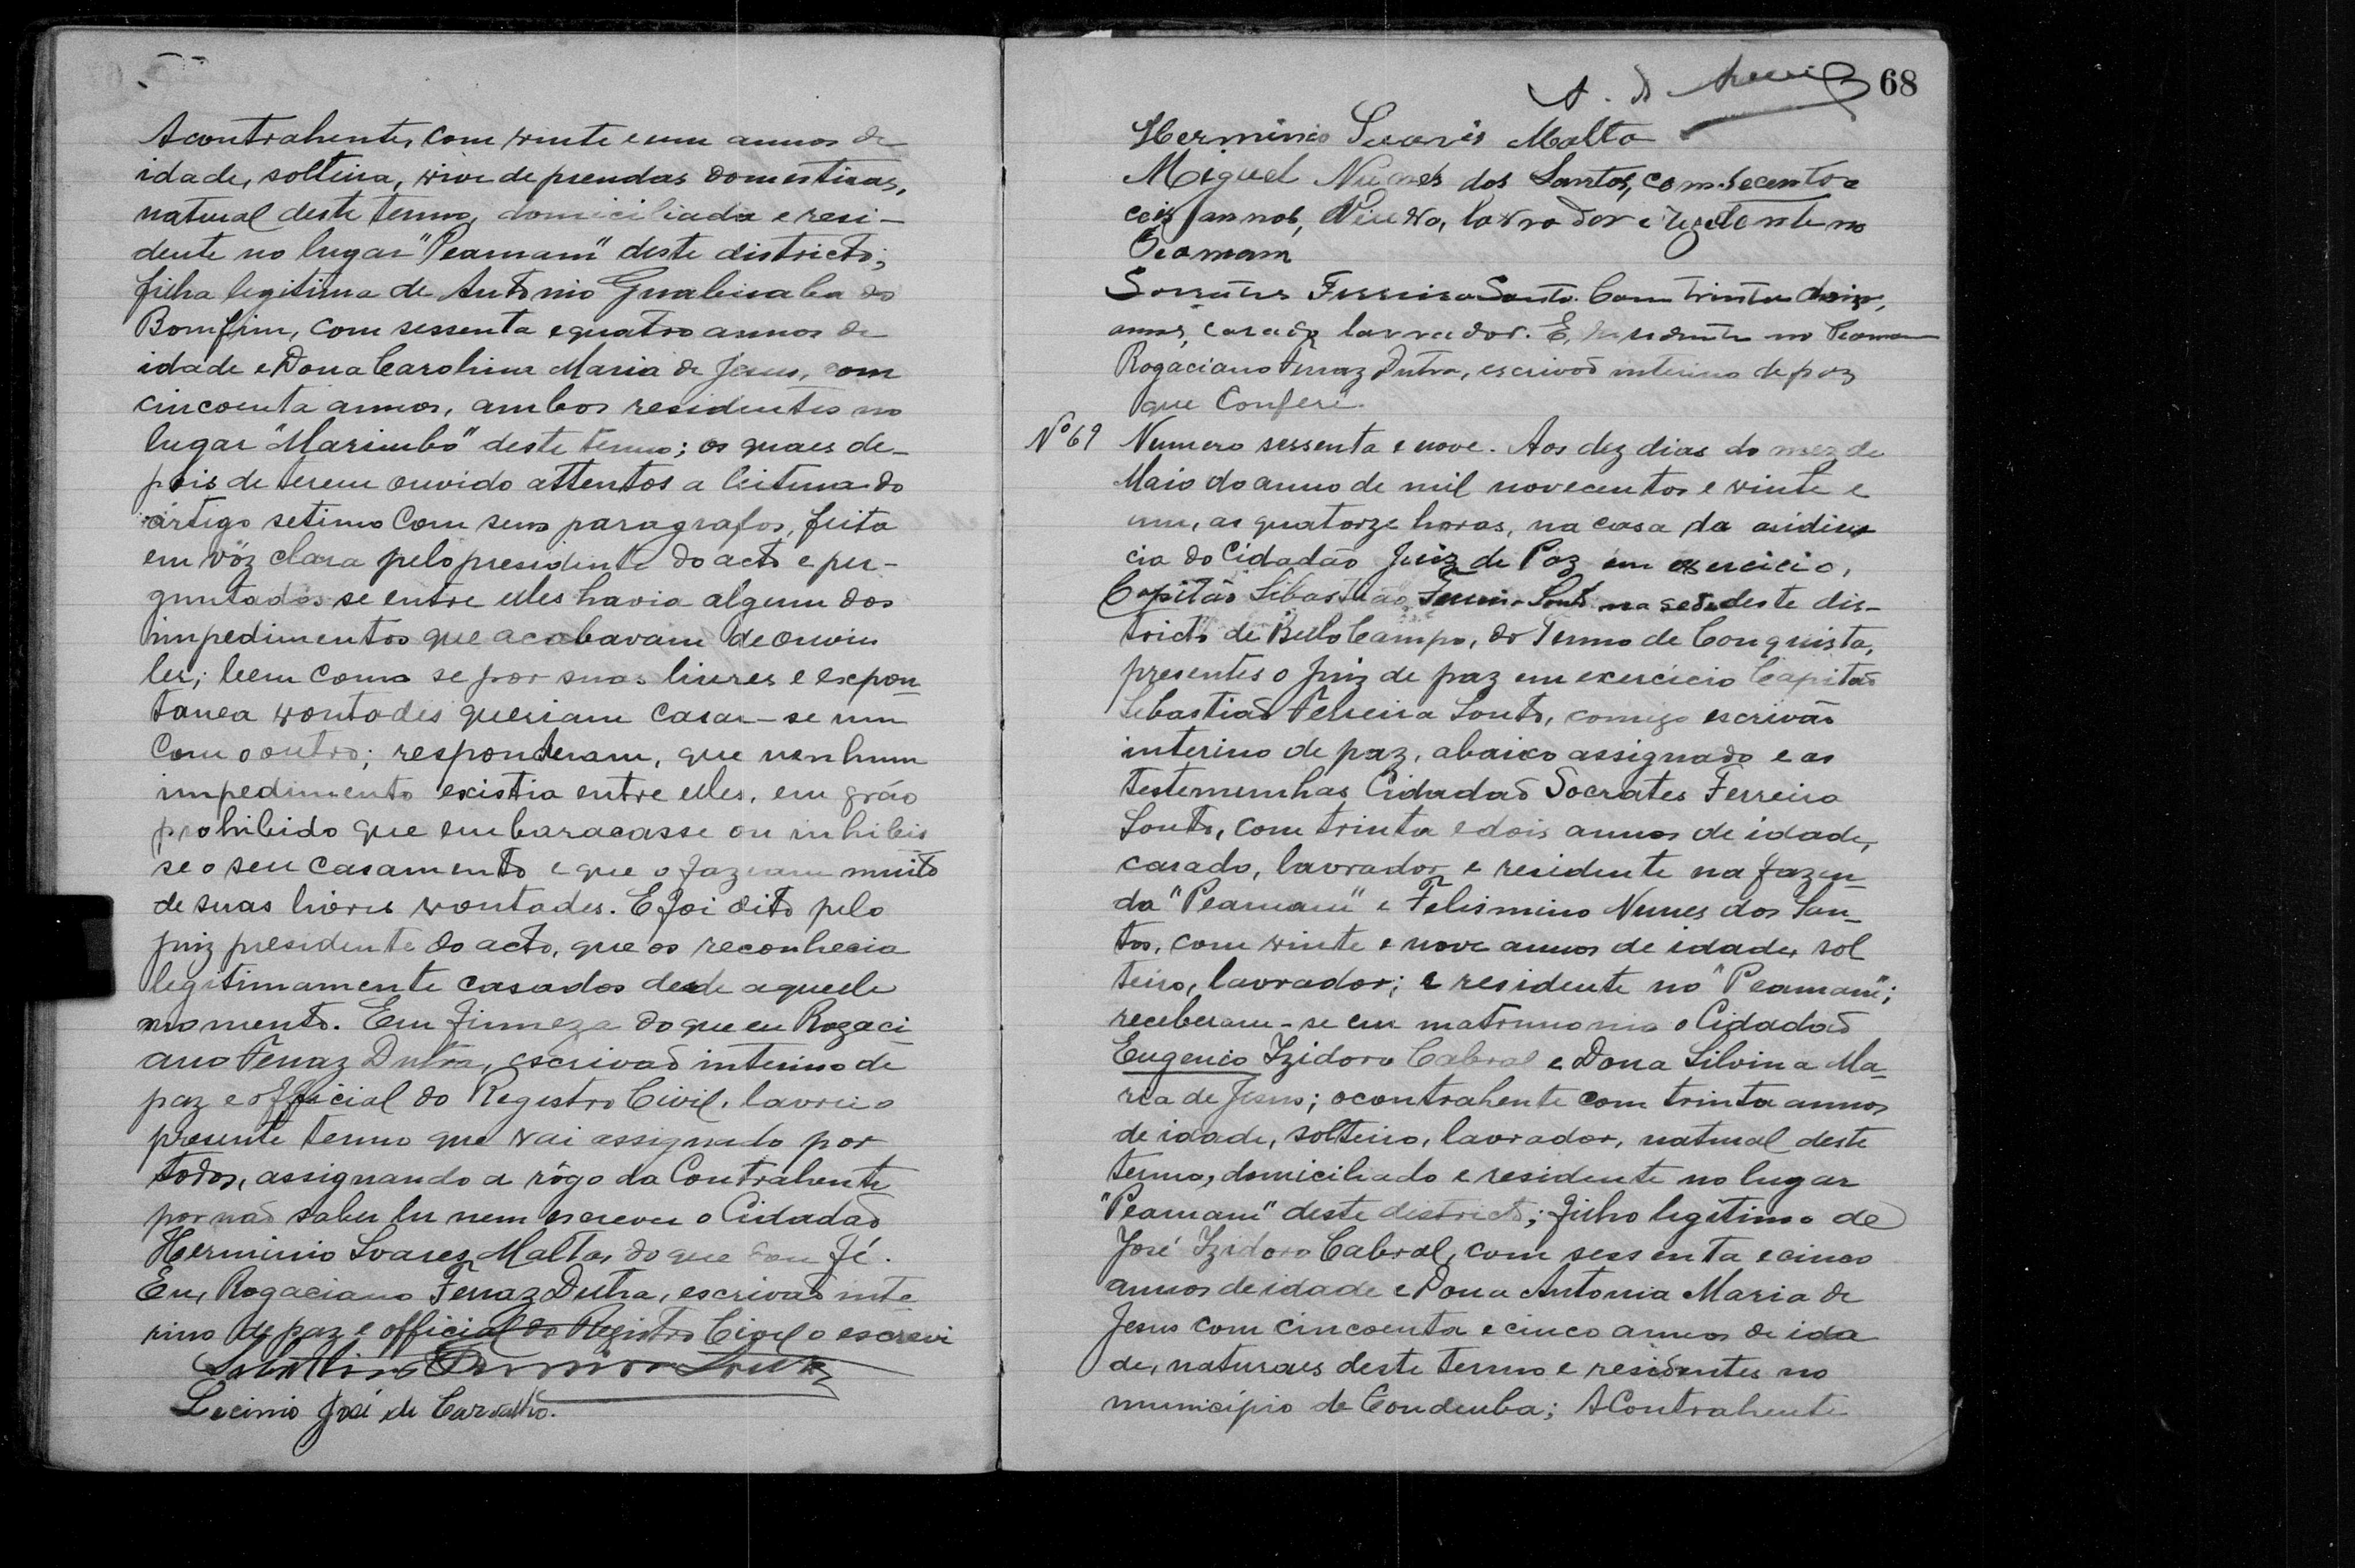 A contrahente, com vinte e um annos de
idade, solteira, vive de prendas domesticas,
natural deste termo, domiciliada e resi-
dente no lugar "Peamam" deste districto;
filha legitima de Antonio Guabiraba do
Bomfim, com sessenta e quatro annos de
idade e Dona Carolina Maria de Jesus, com
cincoenta annos, ambos residentes no
lugar "Marimbo" deste termo; os quaes de-
pois de terem ouvido attentos a leitura do
artigo setimo com seus paragrafos, feita
em vóz clara pelo presidente do acto e per-
guntados se entre elles havia algum dos
impedimentos que acabavam de ouvir
ler; bem como se por suas livres e expon-
tanea vontades queriam casar-se um
com o outro; responderam, que nenhum
impedimento existia entre elles, em gráo
prohibido que embaracasse ou inhibis
se o seu casamento e que o faziam muito
de suas livres vontades. E foi dito pelo
juiz presidente do acto, que os reconhecia
legitimamente casados desde aquelle
momento. Em firmeza do que eu Rogaci-
ano Ferraz Dutra, escrivaõ interino de
paz e official do Registro Civil, lavrei o
presente termo que vai assignado por
todos, assignando a rôgo da Contrahente
por naõ saber ler nem escrever o Cidadaõ
Herminio Soares Malta, do que dou fé.
Eu, Rogaciano Ferraz Dutra, escrivaõ inte-
rino de paz e official do Registro Civil o escrevi
Sebastião Ferreira Souto
Licinio José de Carvalho.
68
Herminio Suares Malta
Miguel Nunes dos Santos, com secenta e
ceis annos, Viuvo, lavrador e rezidente no
Peamam
Socrates Ferreira Souto. Com trinta e dois,
annos, casado lavrador. E, residente no Peamam
Rogaciano Ferraz Dutra, escrivaõ interino de paz
que Conferi.
Nº 69 Numero sessenta e nove. Aos dez dias do mez de
Maio do anno de mil novecentos e vinte e
um, as quatorze horas, na casa da audien
cia do Cidadão Juiz de Paz em exercicio,
Capitão Sebastião Ferreira Souto na sede deste dis-
tricto de Bello Campo, do Termo de Conquista,
presentes o Juiz de paz em exercicio Capitaõ
Sebastiaõ Ferreira Souto, comigo escrivão
interino de paz, abaixo assignado e as
testemunhas Cidadaõ Socrates Ferreira
Souto, com trinta e dois annos de idade,
casado, lavrador e residente na fazen-
da "Peamam" e Felismino Nunes dos San-
tos, com vinte e nove annos de idade, sol
teiro, lavrador; e residente no "Peamam";
receberam-se em matrimonio o Cidadaõ
Eugenio Izidoro Cabral e Dona Silvina Ma-
ria de Jesus; o contrahente com trinta annos
de idade, solteiro, lavrador, natural deste
termo, domiciliado e residente no lugar
"Peamam" deste districto; filho legitimo de
José Izidoro Cabral, com sessenta e cinco
annos de idade e Dona Antonia Maria de
Jesus com cincoenta e cinco annos de ida
de, naturaes deste termo e residentes no
municipio de Condeuba; A Contrahente